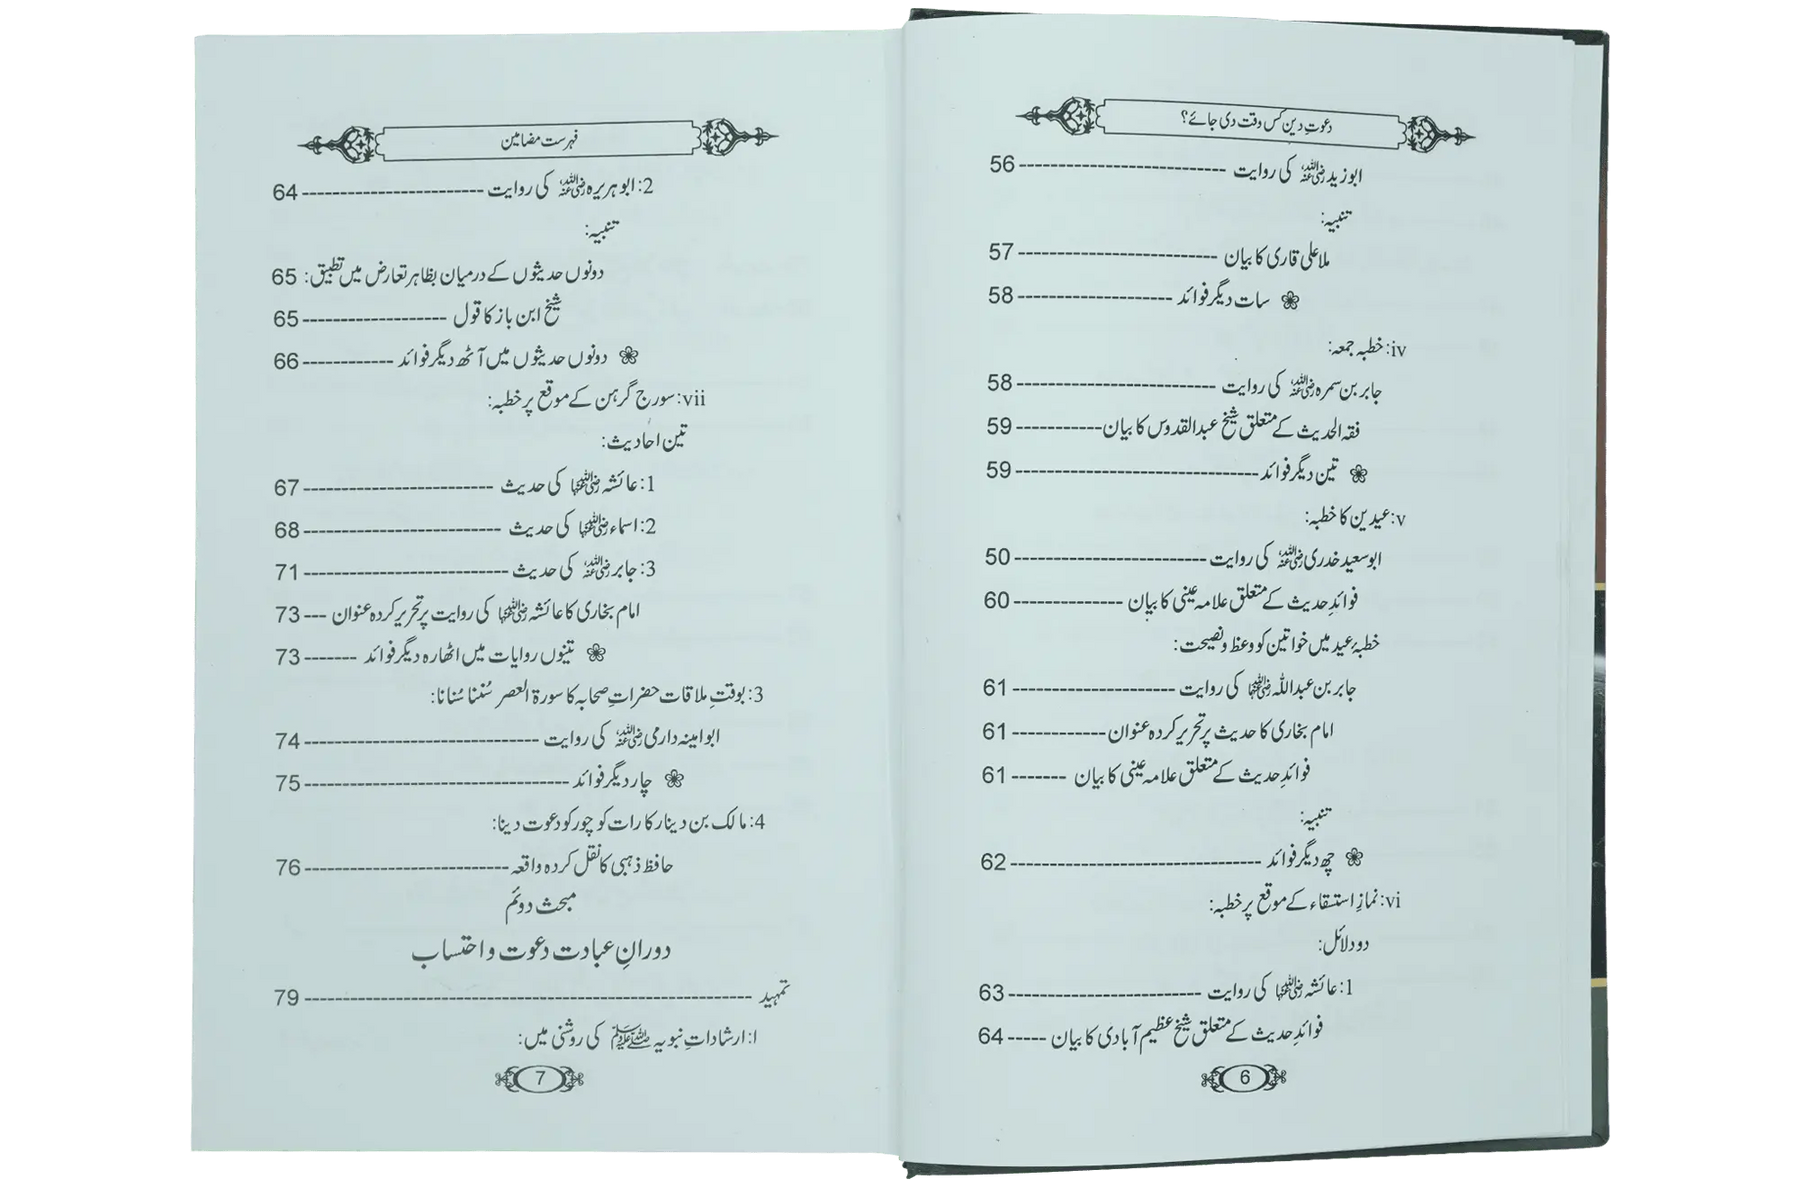 دعوتِ دین کس وقت دی جائے؟
ابوزید رضی اللہ عنہ کی روایت ---------------------------- 56
تنبیہ:
ملا علی قاری کا بیان -------------------------- 57
❀ سات دیگر فوائد -------------------- 58
iv: خطبہ جمعہ:
جابر بن سمرہ رضی اللہ عنہ کی روایت -------------------------- 58
فقہ الحدیث کے متعلق شیخ عبدالقدوس کا بیان ----------- 59
❀ تین دیگر فوائد -------------------------------- 59
v: عیدین کا خطبہ:
ابوسعید خدری رضی اللہ عنہ کی روایت ------------------------- 50
فوائدِ حدیث کے متعلق علامہ عینی کا بیان -------------- 60
خطبۂ عید میں خواتین کو وعظ و نصیحت:
جابر بن عبداللہ رضی اللہ عنہما کی روایت --------------------- 61
امام بخاری کا حدیث پر تحریر کردہ عنوان ------------ 61
فوائدِ حدیث کے متعلق علامہ عینی کا بیان ------- 61
تنبیہ:
❀ چھ دیگر فوائد --------------------------------- 62
vi: نمازِ استسقاء کے موقع پر خطبہ:
دو دلائل:
1: عائشہ رضی اللہ عنہا کی روایت ------------------------- 63
فوائدِ حدیث کے متعلق شیخ عظیم آبادی کا بیان ----- 64
6
فہرست مضامین
2: ابو ہریرہ رضی اللہ عنہ کی روایت ------------------------ 64
تنبیہ:
دونوں حدیثوں کے درمیان بظاہر تعارض میں تطبیق: 65
شیخ ابن باز کا قول ------------------- 65
❀ دونوں حدیثوں میں آٹھ دیگر فوائد ------------ 66
vii: سورج گرہن کے موقع پر خطبہ:
تین احادیث:
1: عائشہ رضی اللہ عنہا کی حدیث ------------------------- 67
2: اسماء رضی اللہ عنہا کی حدیث -------------------------- 68
3: جابر رضی اللہ عنہ کی حدیث --------------------------- 71
امام بخاری کا عائشہ رضی اللہ عنہا کی روایت پر تحریر کردہ عنوان --- 73
❀ تینوں روایات میں اٹھارہ دیگر فوائد ------- 73
3: بوقتِ ملاقات حضراتِ صحابہ کا سورۃ العصر سُننا سُنانا:
ابو امینہ دارمی رضی اللہ عنہ کی روایت ------------------------------- 74
❀ چار دیگر فوائد ----------------------------------- 75
4: مالک بن دینار کا رات کو چور کو دعوت دینا:
حافظ ذہبی کا نقل کردہ واقعہ --------------------------- 76
مبحث دوئم
دورانِ عبادت دعوت و احتساب
تمہید ----------------------------------------------------------- 79
ا: ارشاداتِ نبویہ صلی اللہ علیہ وسلم کی روشنی میں:
7